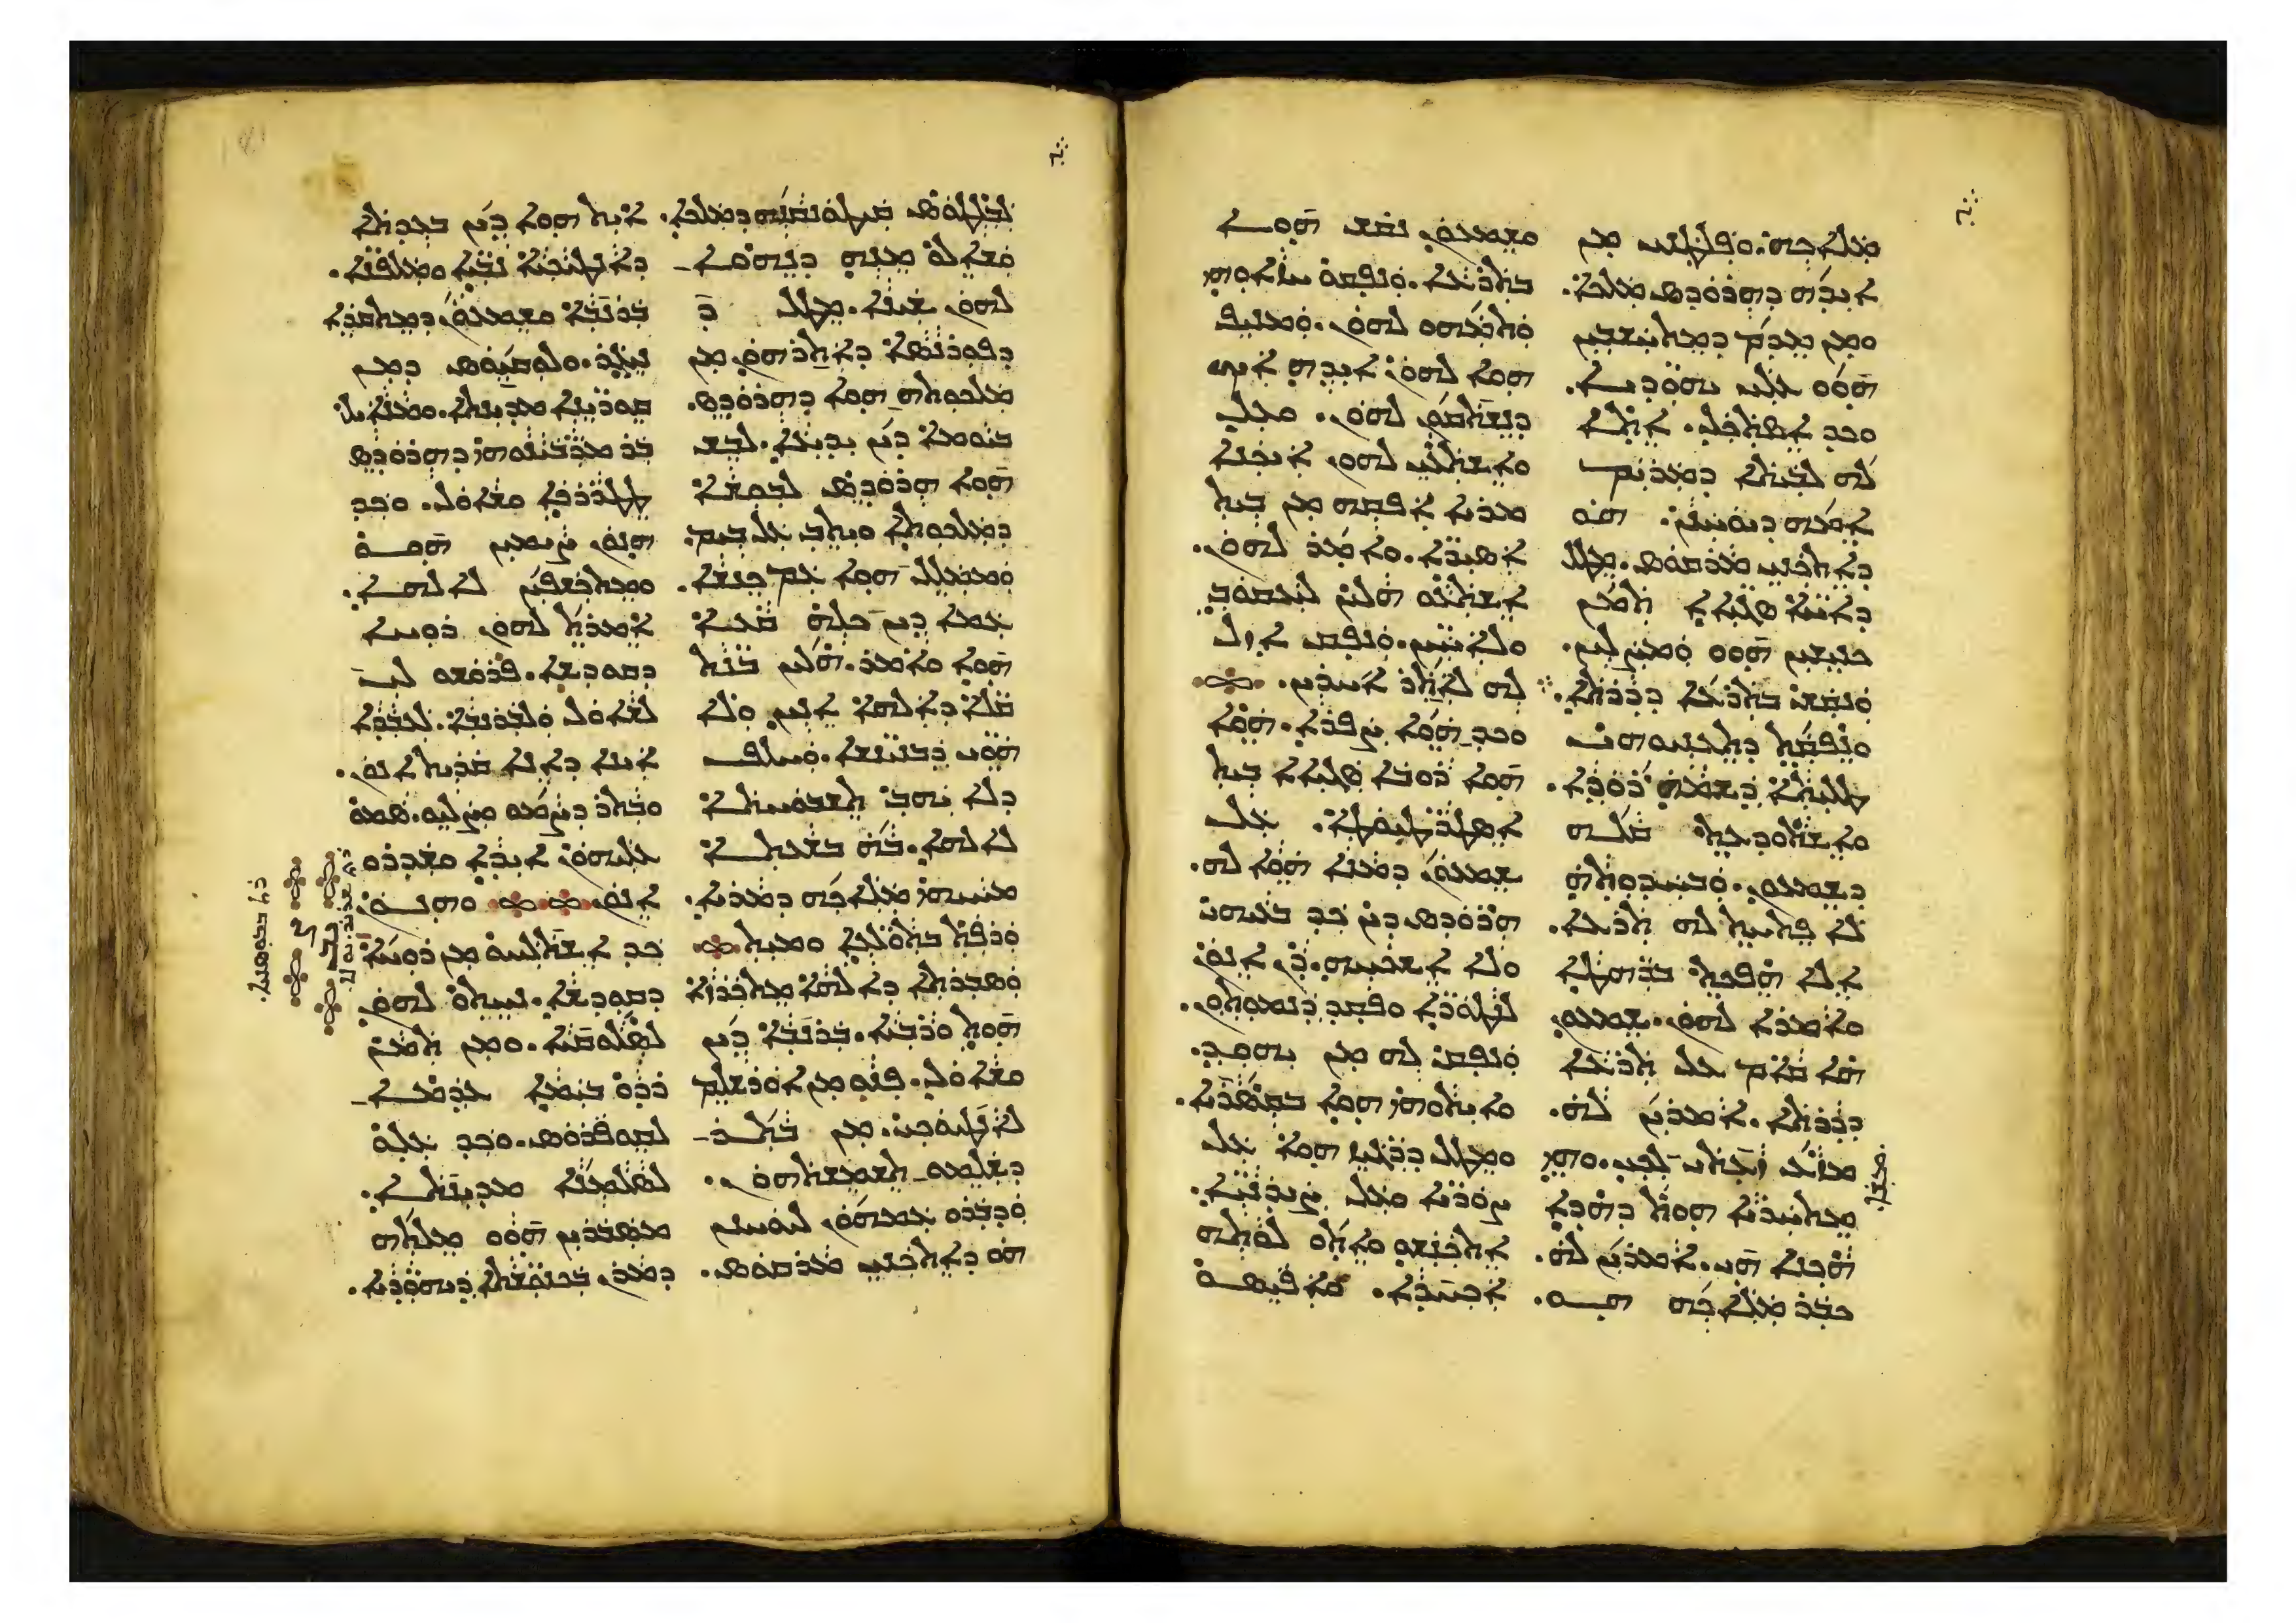 ܡܠܐܟܗ. ܘܦܨܝܢܝ ܡܢ
ܐܝܕܗ ܕܗܪܘܕܣ ܡܠܟܐ.
ܘܡܢ ܡܕܡ ܕܡܬܚܫܒܝܢ
ܗܘܘ ܥܠܝ ܝܗܘܕܝܐ.
ܘܟܕ ܐܣܬܟܠ. ܐܬܐ
ܠܗ ܠܒܝܬܐ ܕܡܪܝܡ
ܐܡܗ ܕܝܘܚܢܢ. ܗܘ
ܕܐܬܟܢܝ ܡܪܩܘܣ. ܡܛܠ
ܕܐܚܐ ܣܓܝܐܐ ܬܡܢ
ܟܢܝܫܝܢ ܗܘܘ ܘܡܨܠܝܢ.
ܘܢܩܫ ܒܬܪܥܐ ܕܕܪܬܐ.
ܘܢܦܩܬ ܕܬܥܢܝܘܗܝ
ܛܠܝܬܐ ܕܫܡܗ ܪܘܕܐ.
ܘܐܫܬܘܕܥܬ ܩܠܗ
ܕܫܡܥܘܢ. ܘܒܚܕܘܬܗ
ܠܐ ܦܬܚܬ ܠܗ ܬܪܥܐ.
ܐܠܐ ܗܦܟܬ ܒܪܗܛܐ
ܘܐܡܪܐ ܠܗܘܢ. ܫܡܥܘܢ
ܗܐ ܩܐܡ ܥܠ ܬܪܥܐ
ܕܕܪܬܐ. ܐܡܪܝܢ ܠܗ.
ܡܙܥ ܙܥܬܝ ܠܟܝ. ܘܗܝ
ܡܬܚܪܝܐ ܗܘܬ ܕܗܕܐ
ܗܟܢܐ ܗܝ. ܐܡܪܝܢ ܠܗ.
ܟܒܪ ܡܠܐܟܗ ܗܘ.
ܘܫܡܥܘܢ ܢܩܫ ܗܘܐ
ܒܬܪܥܐ. ܘܢܦܩܘ ܚܙܐܘܗܝ
ܘܬܡܗܘ ܠܗܘܢ. ܘܡܢܝܦ
ܗܘܐ ܠܗܘܢ ܐܝܕܗ ܐܝܟ
ܕܢܫܬܩܘܢ ܠܗܘܢ. ܘܥܠ
ܘܐܫܬܥܝ ܠܗܘܢ ܐܝܟܢܐ
ܡܪܝܐ ܐܦܩܗ ܡܢ ܒܝܬ
ܐܣܝܪܐ. ܘܐܡܪ ܠܗܘܢ.
ܐܫܬܥܘ ܗܠܝܢ ܠܝܥܩܘܒ
ܘܠܐܚܝܢ. ܘܢܦܩ ܐܙܠ
ܠܗ ܠܐܬܪ ܐܚܪܝܢ.
ܘܟܕ ܗܘܐ ܨܦܪܐ. ܗܘܐ
ܗܘܐ ܪܘܒܐ ܣܓܝܐܐ ܒܝܬ
ܐܣܛܪܛܝܘܛܐ. ܥܠ
ܫܡܥܘܢ ܕܡܢܐ ܗܘܐ ܠܗ.
ܗܪܘܕܣ ܕܝܢ ܟܕ ܒܥܝܗܝ
ܘܠܐ ܐܫܟܚܗ. ܕܢ ܐܢܘܢ
ܠܢܛܘܪܐ ܘܦܩܕ ܕܢܡܘܬܘܢ.
ܘܢܦܩ ܠܗ ܡܢ ܝܗܘܕ.
ܘܐܝܬܘܗܝ ܗܘܐ ܒܩܣܪܝܐ.
ܘܡܛܠ ܕܪܓܝܙ ܗܘܐ ܥܠ
ܨܘܪܝܐ ܘܥܠ ܨܝܕܢܝܐ.
ܐܬܟܢܫܘ ܘܐܬܘ ܠܘܬܗ
ܐܟܚܕܐ. ܘܐܦܝܣܘ
ܠܒܠܣܛܘܣ ܩܝܛܘܢܩܢܗ ܕܡܠܟܐ.
ܘܫܐܠܘ ܡܢܗ ܕܢܗܘܐ
ܠܗܘܢ ܫܝܢܐ. ܡܛܠ ܕ
ܕܦܘܪܢܣܐ ܕܐܬܪܗܘܢ ܡܢ
ܡܠܟܘܬܗ ܗܘܐ ܕܗܪܘܕܣ.
ܒܝܘܡܐ ܕܝܢ ܝܕܝܥܐ. ܠܒܫ
ܗܘܐ ܗܪܘܕܣ ܠܒܘܫܐ
ܕܡܠܟܘܬܐ ܘܝܬܒ ܥܠ ܒܝܡ.
ܘܡܡܠܠ ܗܘܐ ܥܡ ܟܢܫܐ.
ܥܡܐ ܕܝܢ ܟܠܗ ܩܥܐ
ܗܘܐ ܘܐܡܪ. ܗܠܝܢ ܒܢܬ
ܩܠܐ ܕܐܠܗܐ ܐܢܝܢ ܘܠܐ
ܗܘܝ ܕܒܢܝܢܫܐ. ܘܚܠܦ
ܕܠܐ ܝܗܒ ܬܫܒܘܚܬܐ
ܠܐܠܗܐ. ܒܗ ܒܫܥܬܐ
ܡܚܝܗܝ ܡܠܐܟܗ ܕܡܪܝܐ.
ܘܪܦܬ ܒܬܘܠܥܐ ܘܡܝܬ
ܘܣܒܪܬܐ ܕܐܠܗܐ ܡܬܟܪܙܐ
ܗܘܬ ܘܪܒܝܐ. ܒܪܢܒܐ ܕܝܢ
ܘܫܐܘܠ. ܦܢܘ ܡܢ ܐܘܪܫܠܡ
ܠܐܢܛܝܘܟܝ. ܡܢ ܒܬܪ
ܕܫܠܡܘ ܬܫܡܫܬܗܘܢ.
ܘܕܒܪܘ ܥܡܗܘܢ ܠܝܘܚܢܢ
ܗܘ ܕܐܬܟܢܝ ܡܪܩܘܣ.
ܐܝܬ ܗܘܐ ܕܝܢ ܒܥܕܬܐ
ܕܐܢܛܝܘܟܝܐ ܢܒܝܐ ܘܡܠܦܢܐ.
ܒܪܢܒܐ ܘܫܡܥܘܢ ܕܡܬܩܪܐ
ܢܝܓܪ. ܘܠܘܩܝܘܣ ܕܡܢ
ܩܘܪܝܢܐ ܡܕܝܢܬܐ. ܘܡܢܐܝܠ
ܒܪ ܡܪܒܝܢܘܗܝ ܕܗܪܘܕܣ
ܛܛܪܪܟܐ ܘܫܐܘܠ. ܘܟܕ
ܗܢܘܢ ܨܝܡܝܢ ܗܘܘ
ܘܡܬܟܫܦܝܢ ܠܐܠܗܐ.
ܐܡܪܬ ܠܗܘܢ ܪܘܚܐ
ܕܩܘܕܫܐ. ܦܪܘܫܘ ܠܝ
ܠܫܐܘܠ ܘܠܒܪܢܒܐ. ܠܥܒܕܐ
ܐܝܢܐ ܕܐܢܐ ܩܪܝܬ ܐܢܘܢ.
ܘܒܬܪ ܕܨܡܘ ܘܨܠܝܘ. ܣܡܘ
ܥܠܝܗܘܢ ܐܝܕܐ ܘܫܕܪܘ
ܐܢܘܢ. ܘܗܢܘܢ
ܟܕ ܐܫܬܠܚܘ ܡܢ ܪܘܚܐ
ܕܩܘܕܫܐ. ܢܚܬܘ ܠܗܘܢ
ܠܣܠܘܩܝܐ. ܘܡܢ ܬܡܢ
ܪܕܘ ܒܝܡܐ ܥܕܡܐ
ܠܩܘܦܪܘܣ. ܘܟܕ ܥܠܘ
ܠܣܠܡܢܐ ܡܕܝܢܬܐ.
ܡܣܒܪܝܢ ܗܘܘ ܡܠܬܗ
ܕܡܪܢ ܒܟܢܘܫܬܐ ܕܝܗܘܕܝܐ.